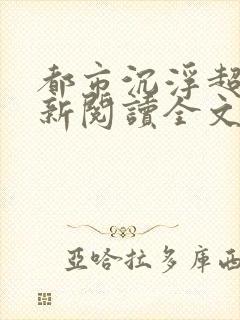 都市沉浮超
新閱讀全文
亞哈拉多庫西